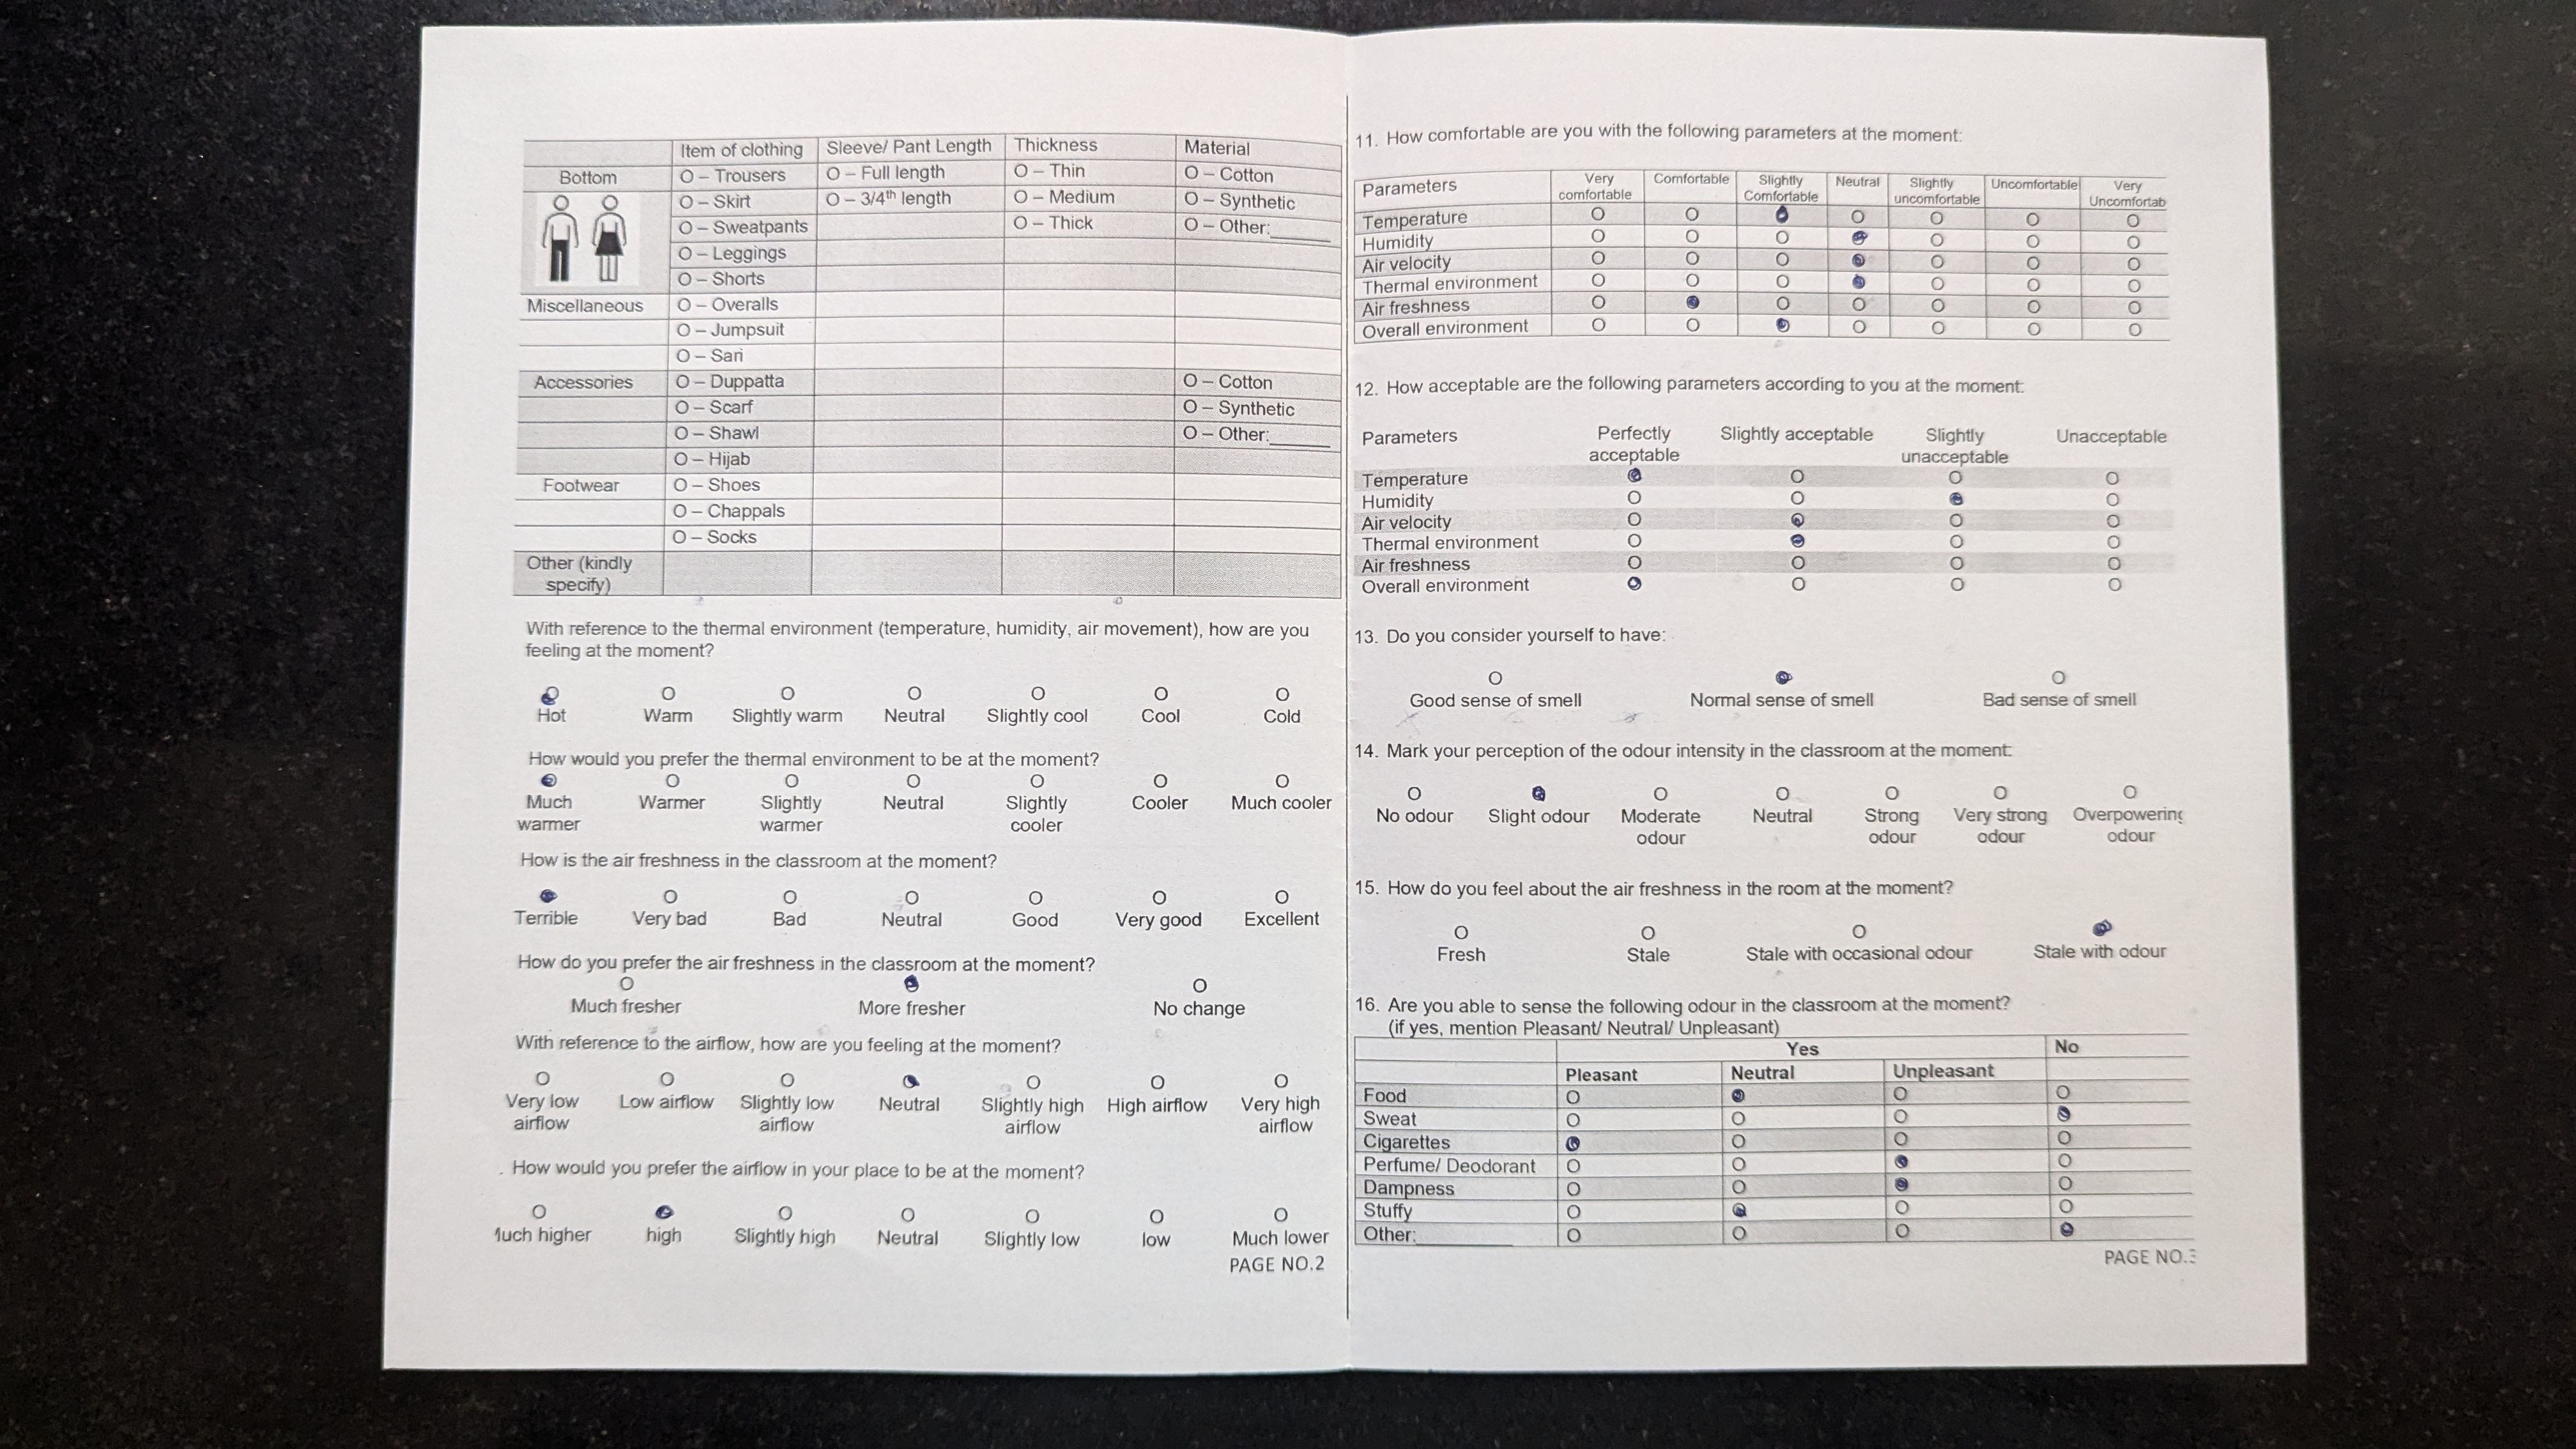 Item of clothing Sleeve/ Pant Length Thickness Material
Bottom O – Trousers O – Full length O – Thin O – Cotton
O – Skirt O – 3/4th length O – Medium O – Synthetic
O – Sweatpants O – Thick O – Other:______
O – Leggings
O – Shorts
Miscellaneous O – Overalls
O – Jumpsuit
O – Sari
Accessories O – Duppatta O – Cotton
O – Scarf O – Synthetic
O – Shawl O – Other:______
O – Hijab
Footwear O – Shoes
O – Chappals
O – Socks
Other (kindly
specify)
With reference to the thermal environment (temperature, humidity, air movement), how are you
feeling at the moment?
O O O O O O
Hot Warm Slightly warm Neutral Slightly cool Cool Cold
How would you prefer the thermal environment to be at the moment?
O O O O O O
Much Warmer Slightly Neutral Slightly Cooler Much cooler
warmer warmer cooler
How is the air freshness in the classroom at the moment?
O O O O O O
Terrible Very bad Bad Neutral Good Very good Excellent
How do you prefer the air freshness in the classroom at the moment?
O O
Much fresher More fresher No change
With reference to the airflow, how are you feeling at the moment?
O O O O O O
Very low Low airflow Slightly low Neutral Slightly high High airflow Very high
airflow airflow airflow airflow
. How would you prefer the airflow in your place to be at the moment?
O O O O O O
Much higher high Slightly high Neutral Slightly low low Much lower
PAGE NO.2
11. How comfortable are you with the following parameters at the moment:
Parameters Very Comfortable Slightly Neutral Slightly Uncomfortable Very
comfortable Comfortable uncomfortable Uncomfortab
Temperature O O O O O O
Humidity O O O O O O
Air velocity O O O O O O
Thermal environment O O O O O O
Air freshness O O O O O O
Overall environment O O O O O O
12. How acceptable are the following parameters according to you at the moment:
Parameters Perfectly Slightly acceptable Slightly Unacceptable
acceptable unacceptable
Temperature O O O
Humidity O O O
Air velocity O O O
Thermal environment O O O
Air freshness O O O O
Overall environment O O O
13. Do you consider yourself to have:
O O
Good sense of smell Normal sense of smell Bad sense of smell
14. Mark your perception of the odour intensity in the classroom at the moment:
O O O O O O
No odour Slight odour Moderate Neutral Strong Very strong Overpowering
odour odour odour odour
15. How do you feel about the air freshness in the room at the moment?
O O O
Fresh Stale Stale with occasional odour Stale with odour
16. Are you able to sense the following odour in the classroom at the moment?
(if yes, mention Pleasant/ Neutral/ Unpleasant)
Yes No
Pleasant Neutral Unpleasant
Food O O O
Sweat O O O
Cigarettes O O O
Perfume/ Deodorant O O O
Dampness O O O
Stuffy O O O
Other:__________ O O O
PAGE NO.3